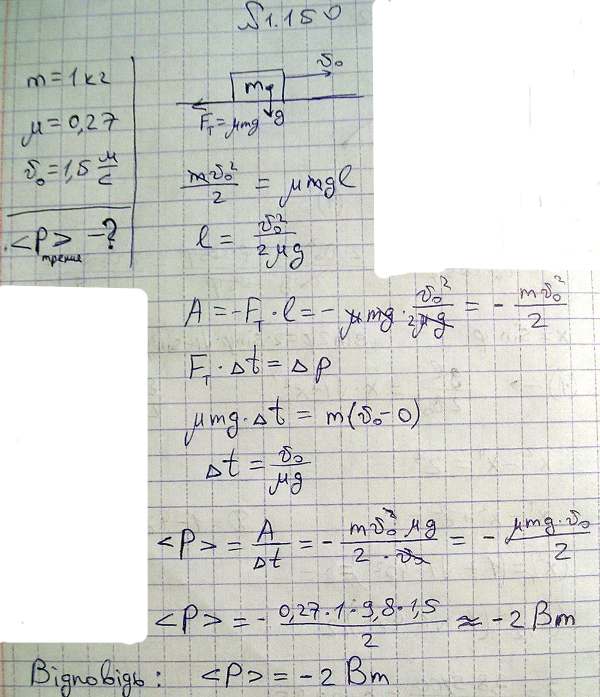 №1.150
m = 1 кг
μ = 0,27
v₀ = 1,5 м/с
<P> трения - ?
v₀
m
Fт = μmg
g
mv₀²/2 = μmgl
l = v₀²/2μg
A = -Fт · l = - μmg · v₀²/2μg = - mv₀²/2
Fт · Δt = Δp
μmg · Δt = m(v₀ - 0)
Δt = v₀/μg
<P> = A/Δt = - mv₀² μg/2 · v₀ = - μmg · v₀/2
<P> = - 0,27 · 1 · 9,8 · 1,5/2 ≈ -2 Вт
Відповідь: <P> = -2 Вт